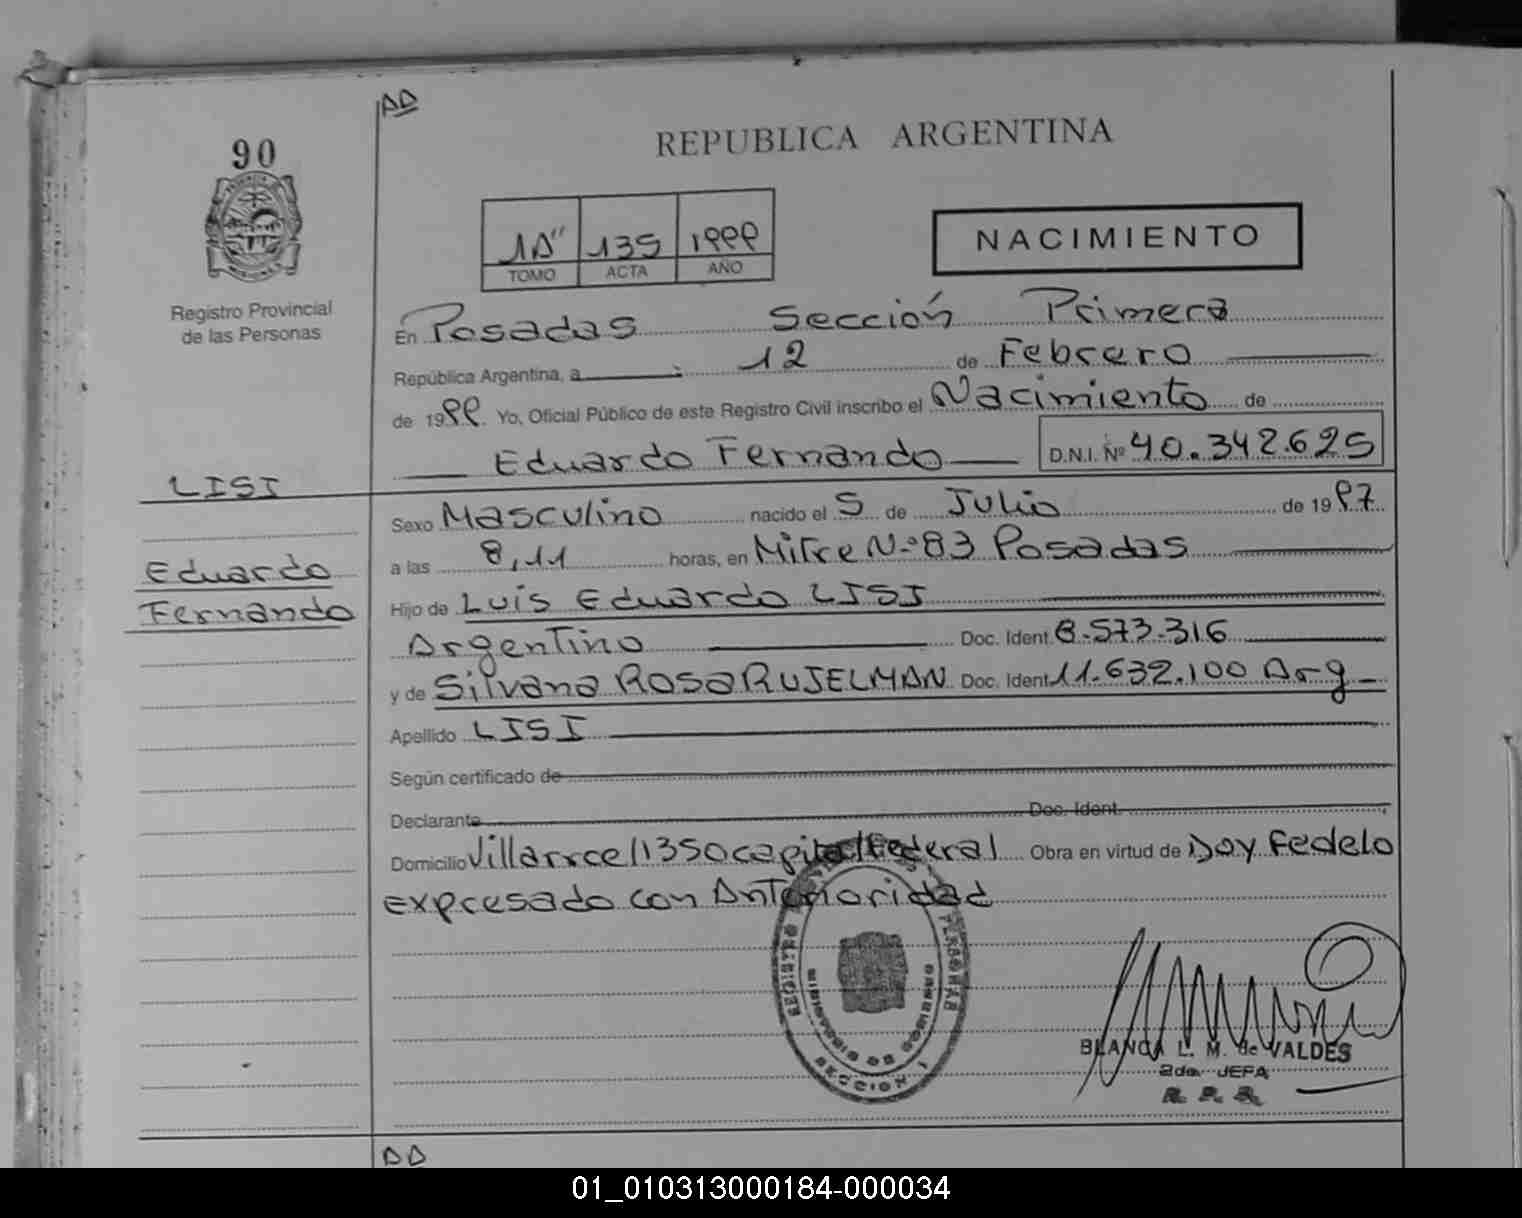 AA
90
REPUBLICA ARGENTINA
1A" 135 1999
TOMO ACTA AÑO
NACIMIENTO
Registro Provincial
de las Personas
En Posadas Sección Primera
República Argentina, a 12 de Febrero
de 1999. Yo, Oficial Público de este Registro Civil inscribo el Nacimiento de
Eduardo Fernando D.N.I. Nº 40.342.625
LISI
Sexo Masculino nacido el 5 de Julio de 1997
Eduardo
a las 8,11 horas, en Mitre Nº 83 Posadas
Fernando
Hijo de Luis Eduardo LISI
Argentino Doc. Ident. 8.573.316
y de Silvana Rosa RUJELMAN Doc. Ident. 11.632.100 Arg
Apellido LISI
Según certificado de
Declarante Doc. Ident.
Domicilio 1350 capital Federal Obra en virtud de
expresado con Anterioridad
REGISTRO PERSONAS
MINISTERIO DE GOBIERNO
SECCION 1
BLANCA L. M. de VALDES
2da. JEFA
R. P. P.
AA
01_010313000184-000034